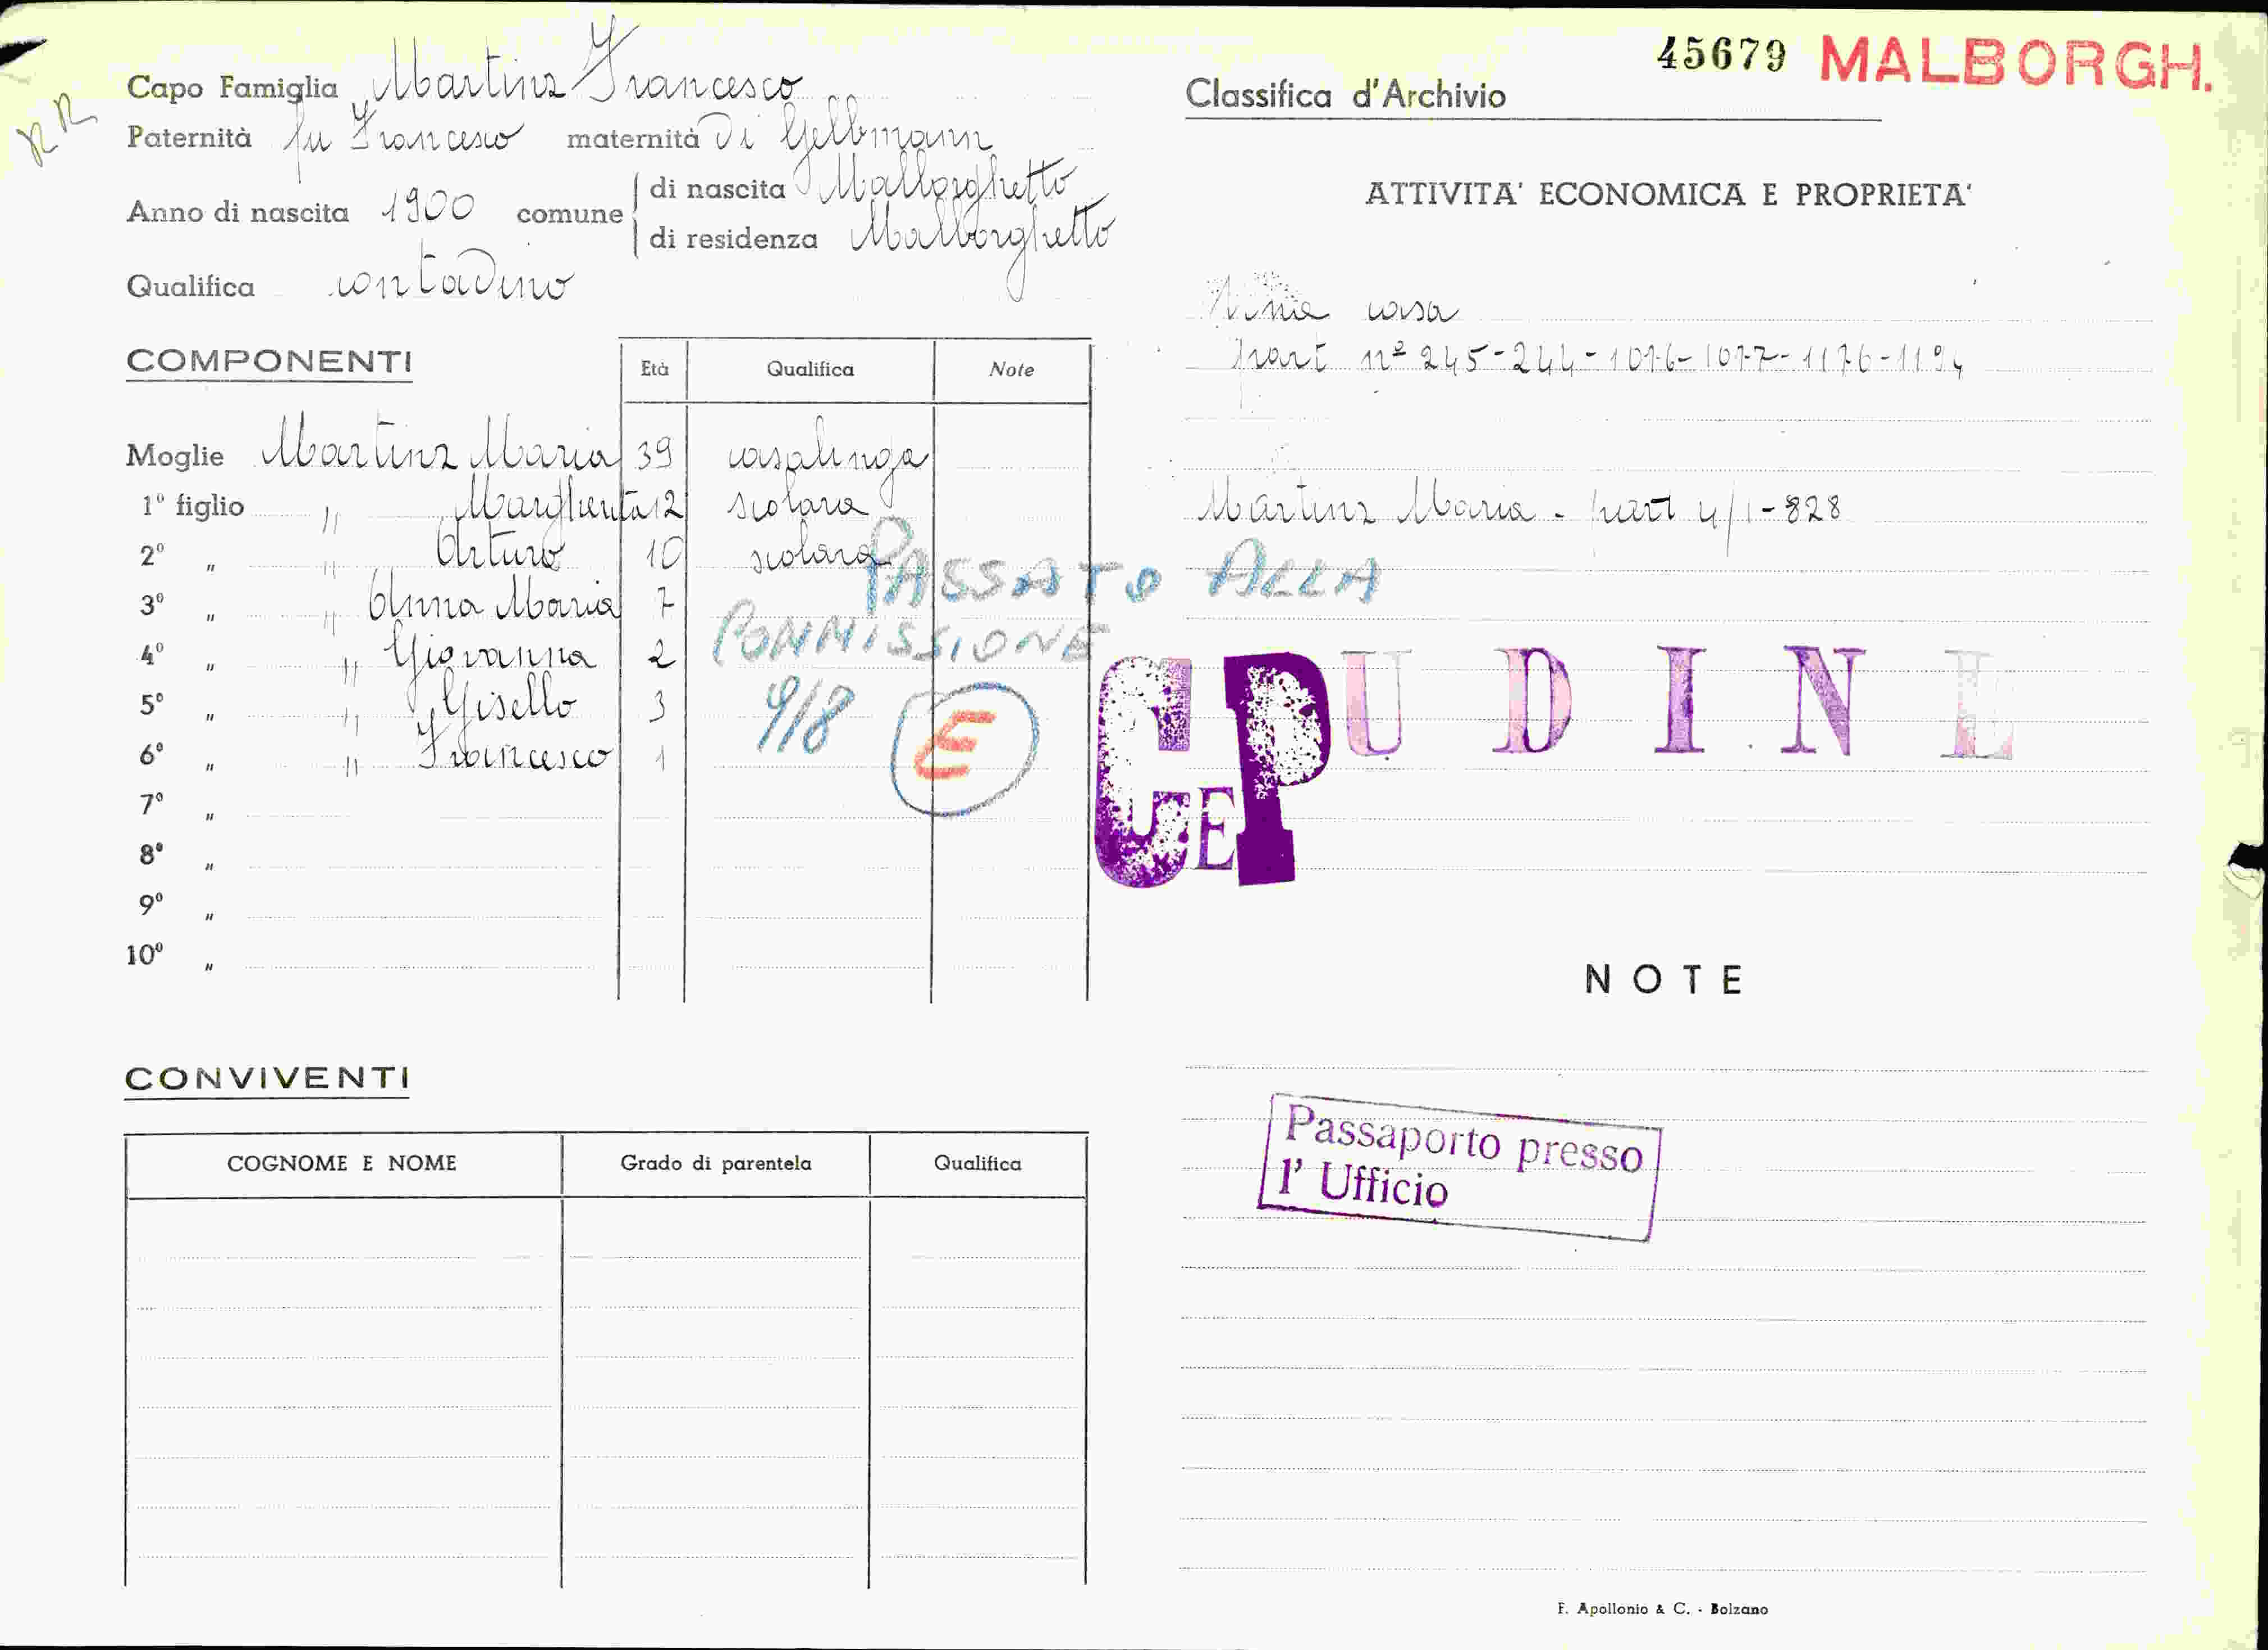 RR
Capo Famiglia Martinz Francesco
Paternità fu Francesco maternità di Gelbmann
Anno di nascita 1900 comune di nascita Malborghetto
di residenza Malborghetto
Qualifica contadino
COMPONENTI
Età Qualifica Note
Moglie Martinz Maria 39 casalinga
1º figlio " Margherita 12 scolara
2º " " Arturo 10 scolara
3º " " Anna Maria 7
4º " " Giovanna 2
5º " " Gisello 3
6º " " Francesco 1
7º "
8º "
9º "
10º "
PASSATO ALLA
COMMISSIONE
9/8 E
CONVIVENTI
COGNOME E NOME Grado di parentela Qualifica
45679 MALBORGH.
Classifica d'Archivio
ATTIVITA' ECONOMICA E PROPRIETA'
casa
part nº 245-244-1076-1077-1176-1194
Martinz Maria - part 4/1-828
CEP UDINE
NOTE
Passaporto presso
l' Ufficio
F. Apollonio & C. - Bolzano